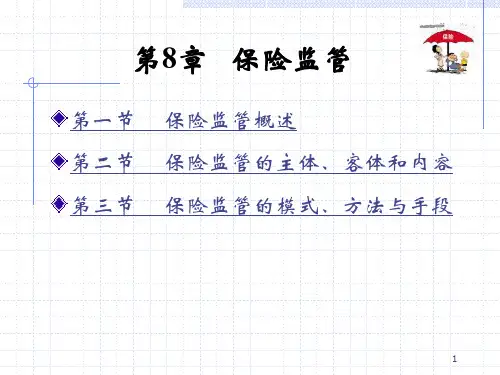 保险
第8章 保险监管
第一节 保险监管概述
第二节 保险监管的主体、客体和内容
第三节 保险监管的模式、方法与手段
1